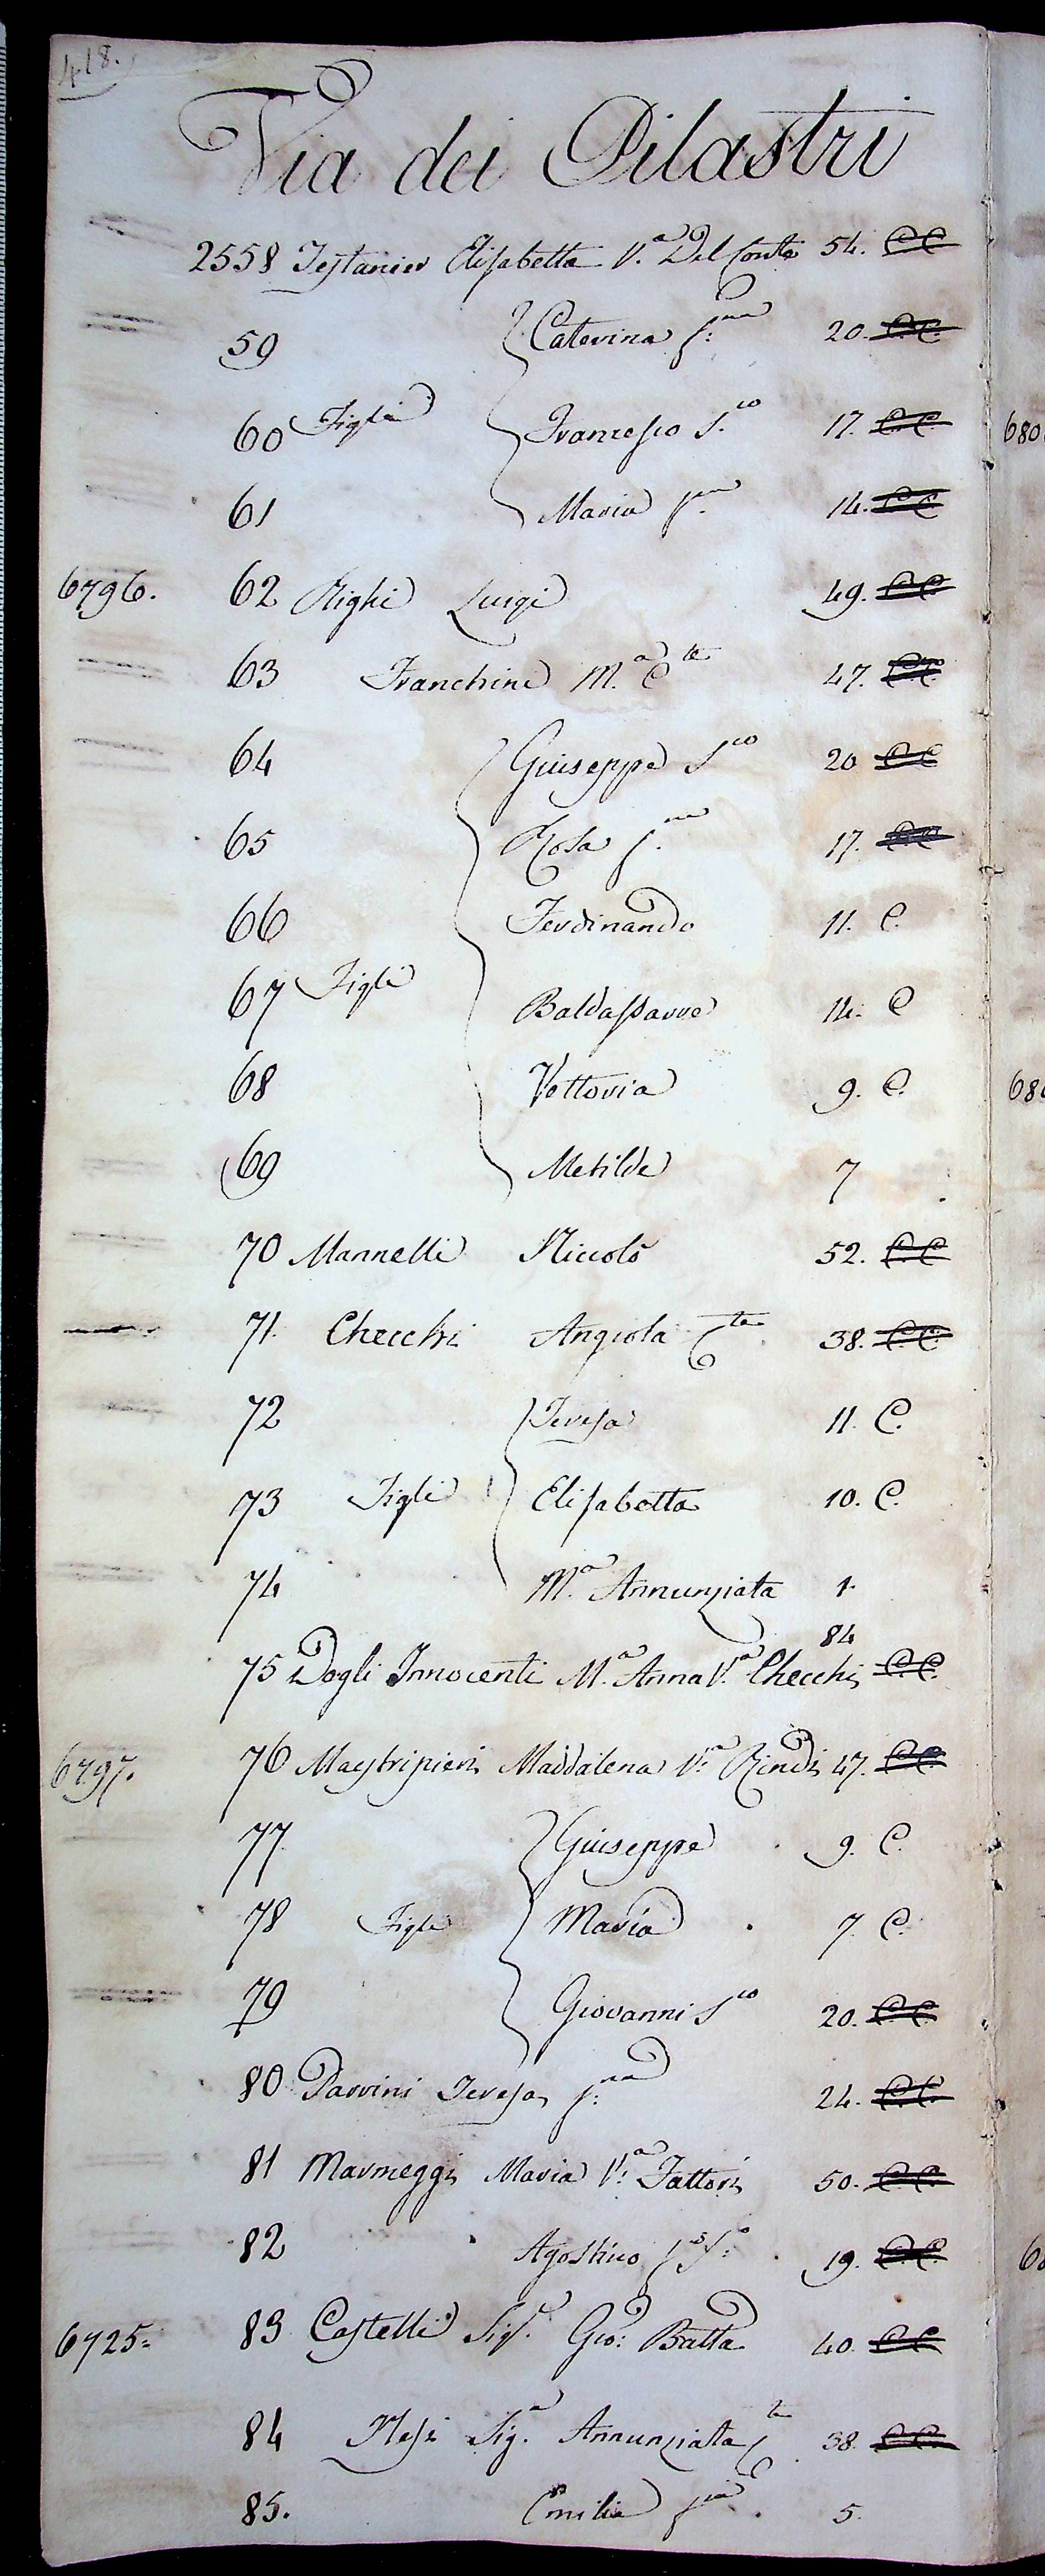 418.
Via dei Pilastri
2558 Testanier Elisabetta V.ª Del Conte 54. C C
59 Caterina f:na 20. C.C.
60 Figli Francesco S.co 17. C C.
61 Maria f.na 14. C C
6796. 62 Righi Luigi 49. C C
63 Franchini M.a C.te 47. C C.
64 Giuseppe S.co 20 C C
65 Rosa f.na 17. C C
66 Ferdinando 11. C.
67 Figli Baldassarre 14. C
68 Vettoria 9. C.
69 Metilde 7
70 Mannelli Niccolò 52. C. C
71. Checchi Angiola C.te 38. C. C.
72 Teresa 11. C.
73 Figli Elisabetta 10. C.
74 M.a Annunziata 1.
84
75 Degli Innocenti M.a Anna V.a Checchi C. C.
6797. 76 Mastripieri Maddalena V.a Rindi 47. C C.
77. Giuseppe 9. C.
78 Figli Maria 7. C.
79 Giovanni S.co 20. C. C.
80 Parrini Teresa f:na 24. C. C.
81 Marmeggi Maria V:a Fattori 50. C. C.
82 Agostino 19. C. C.
6725= 83 Castelli Sig.r Gio: Batta 40. C C
84 Nesi Sig.a Annunziata C.te 38. C C.
85. Emilia 5.